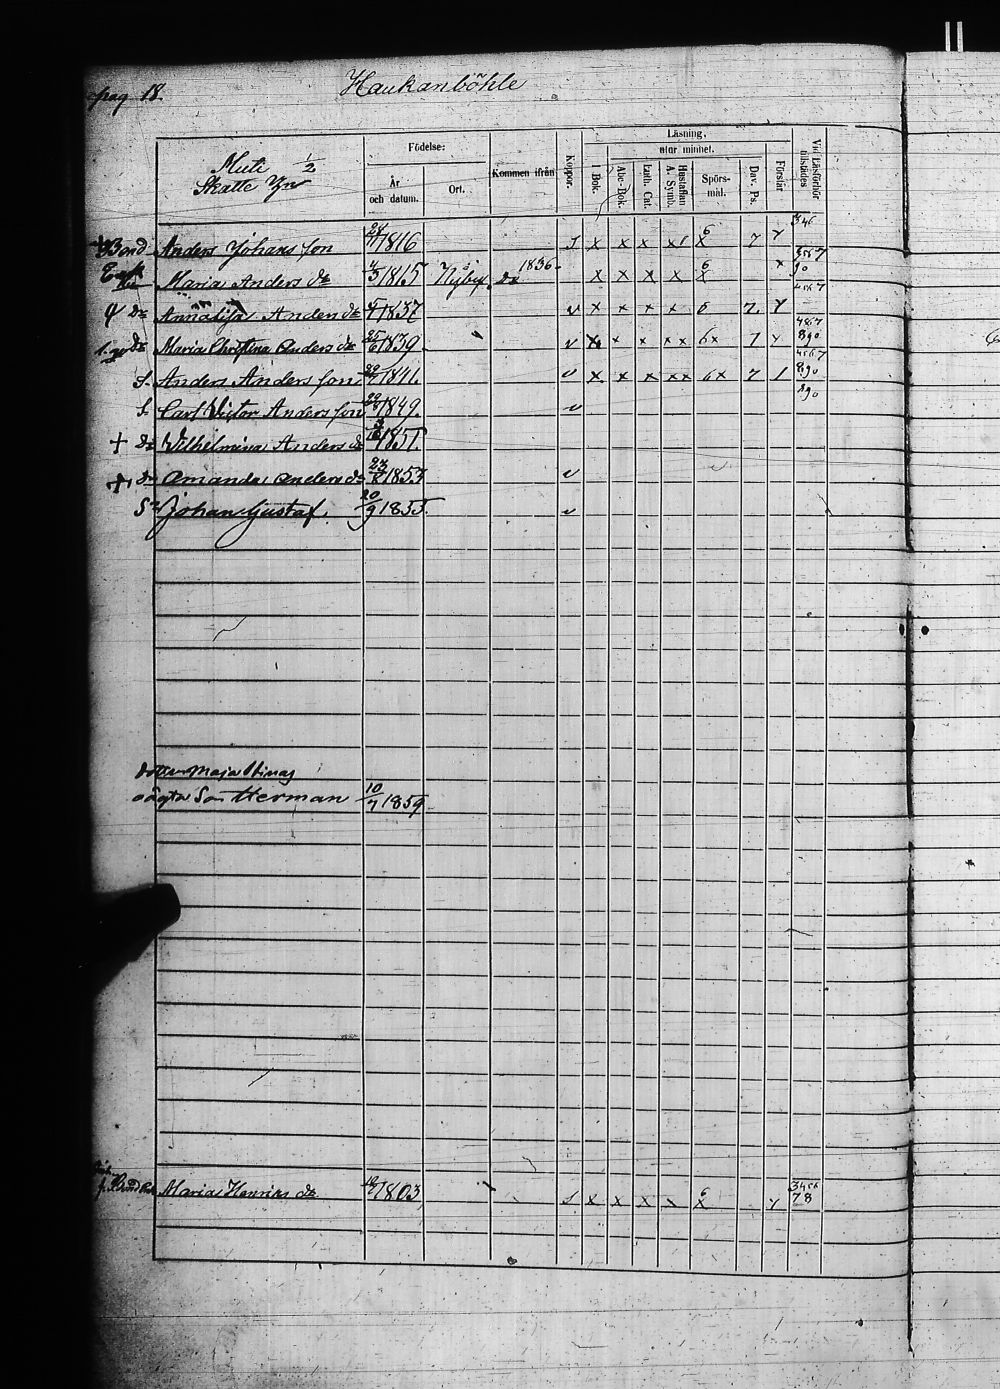 pag 18. Haukanböhle
Muti 1/2
Skatte
Födelse:
År och datum.
Ort.
Kommen ifrån
Koppor.
Läsning,
utur minnet.
I Bok.
Abc-Bok.
Luth. Cat.
Hustaflan A. Symb.
Spörsmål.
Dav. Ps.
Förstår
Vid Läsförhör tillstädes
Bond Anders Johans son 1816 s x x x x x 6 7 346
Maria Anders dr 4/3 1815 Nyby 1836 x x x x x 6 x 90
dr Anders dr 1837 v x x x x 6 7 4567
dr Maria Christina Anders dr 25/6 1839 v x x x x x 6x 7 4867 890
S. Anders Anders son 1841 v x x x x x 6x 7 1 4567 890
S. Carl Victor Anders son 1849 v 890
+ dr Vilhelmina Anders dr 1851.
dr Amanda Anders dr 23/8 1853 v
Sn Johan Gustaf. 20/9 1855. v
dotter Maja Stinas
oägta Son Herman 10/7 1859
Maria Henriks dr 1803 s x x x x 6 x 3456 78